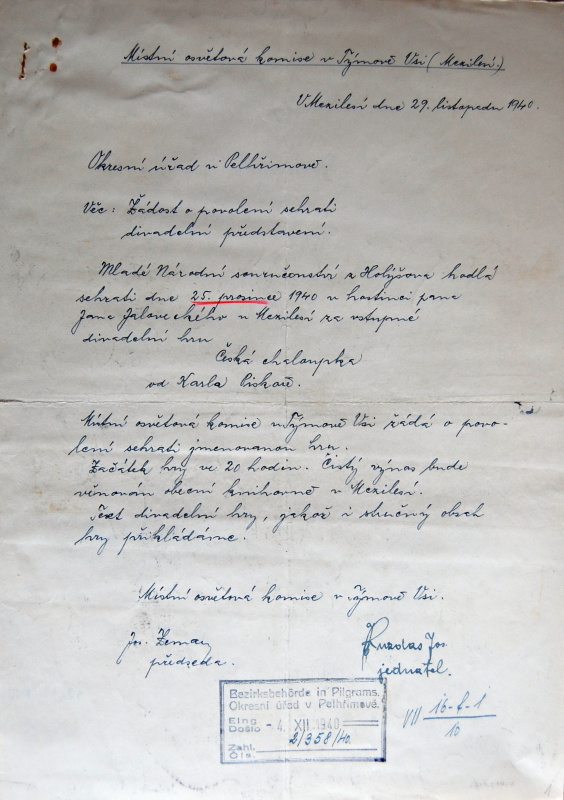 Místní osvětová komise v Týmově Vsi (Mezilesí.)
V Mezilesí dne 29. listopadu 1940.
Okresní úřad v Pelhřimově.
Věc: Žádost o povolení sehrati
divadelní představení.
Mladé Národní souručenství z Holýšova hodlá
sehrati dne 25. prosince 1940 v hostinci pana
Jana Jaloveckého v Mezilesí za vstupné
divadelní hru
Česká chaloupka
od Karla Piskoře.
Místní osvětová komise v Týmově Vsi žádá o povo-
lení sehrati jmenovanou hru.
Začátek hry ve 20 hodin. Čistý výnos bude
věnován obecní knihovně v Mezilesí.
Text divadelní hry, jakož i stručný obsah
hry přikládáme.
Místní osvětová komise v Týmově Vsi.
Jos. Zeman
předseda.
Jos.
jednatel.
Bezirksbehörde in Pilgrams.
Okresní úřad v Pelhřimově.
Eing
Došlo - 4. XII. 1940
Zahl.
Čís. 2/358/40.
VII 16-f-1
10